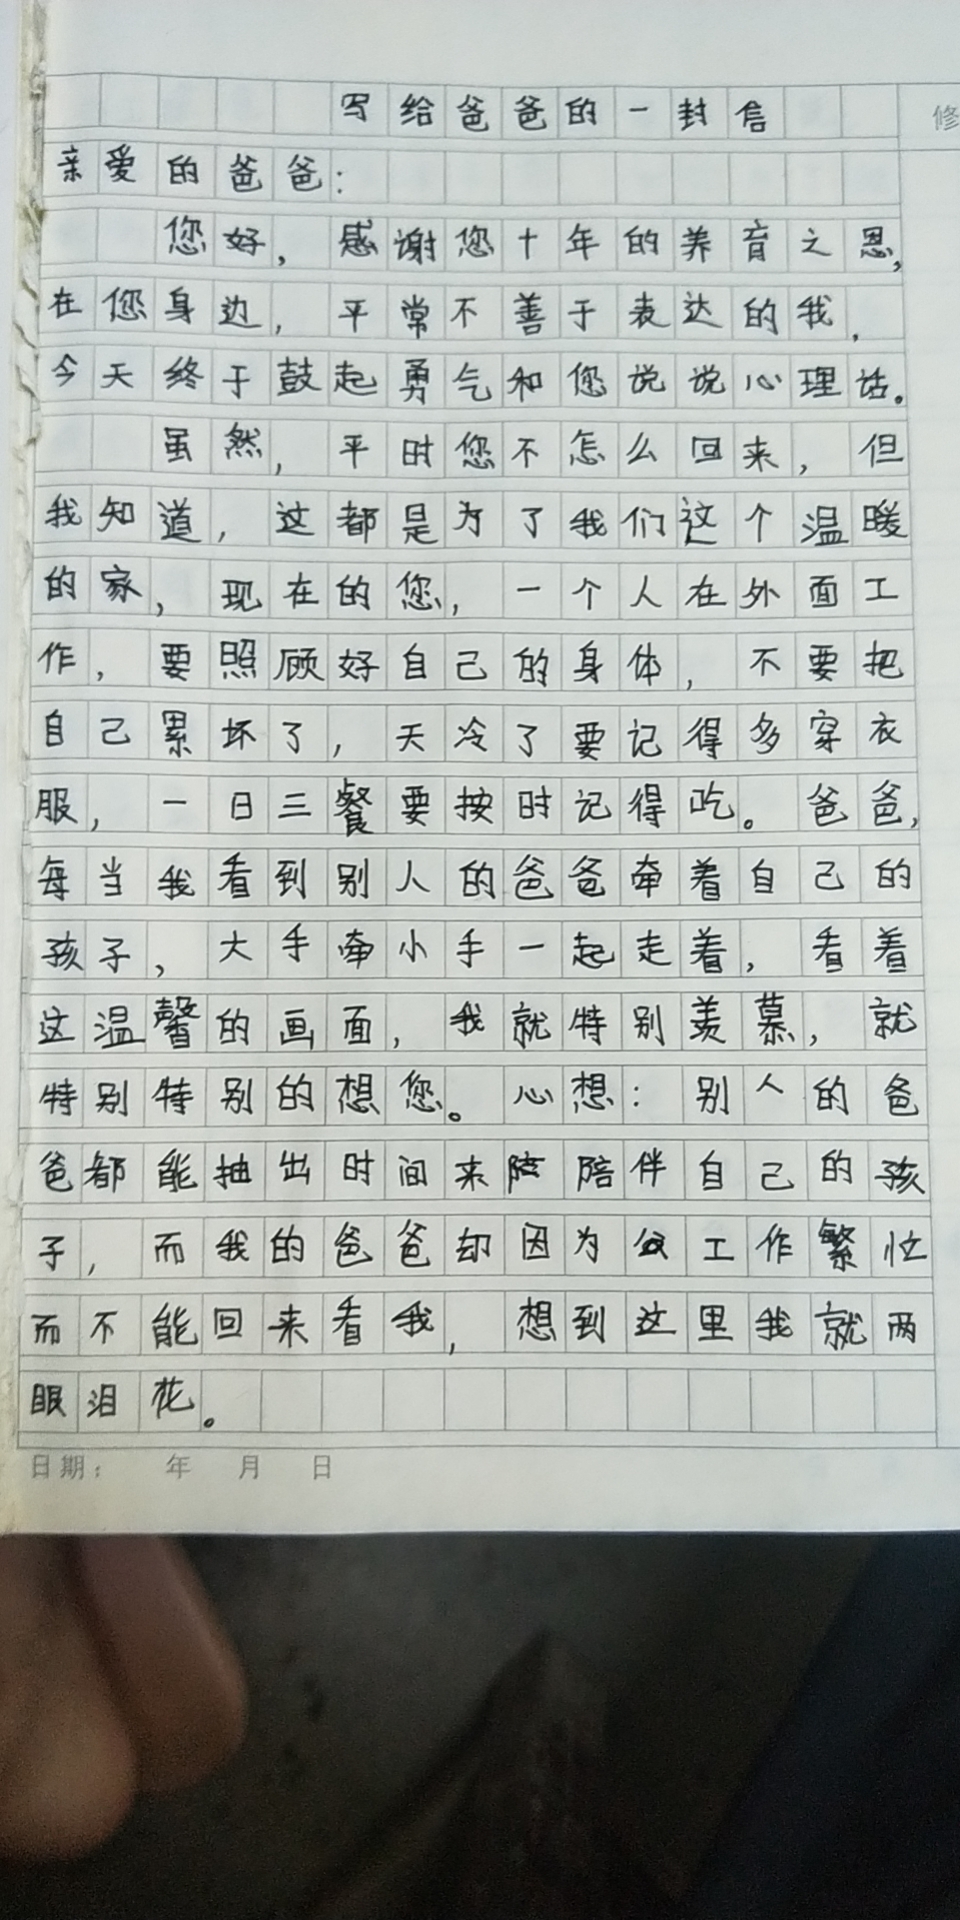 写给爸爸的一封信
修
亲爱的爸爸:
您好，感谢您十年的养育之恩，
在您身边，平常不善于表达的我，
今天终于鼓起勇气和您说说心理话。
虽然，平时您不怎么回来，但
我知道，这都是为了我们这个温暖
的家，现在的您，一个人在外面工
作，要照顾好自己的身体，不要把
自己累坏了，天冷了要记得多穿衣
服，一日三餐要按时记得吃。爸爸，
每当我看到别人的爸爸牵着自己的
孩子，大手牵小手一起走着，看着
这温馨的画面，我就特别羡慕，就
特别特别的想您。心想:别人的爸
爸都能抽出时间来陪陪伴自己的孩
子，而我的爸爸却因为工作繁忙
而不能回来看我，想到这里我就两
眼泪花。
日期: 年 月 日